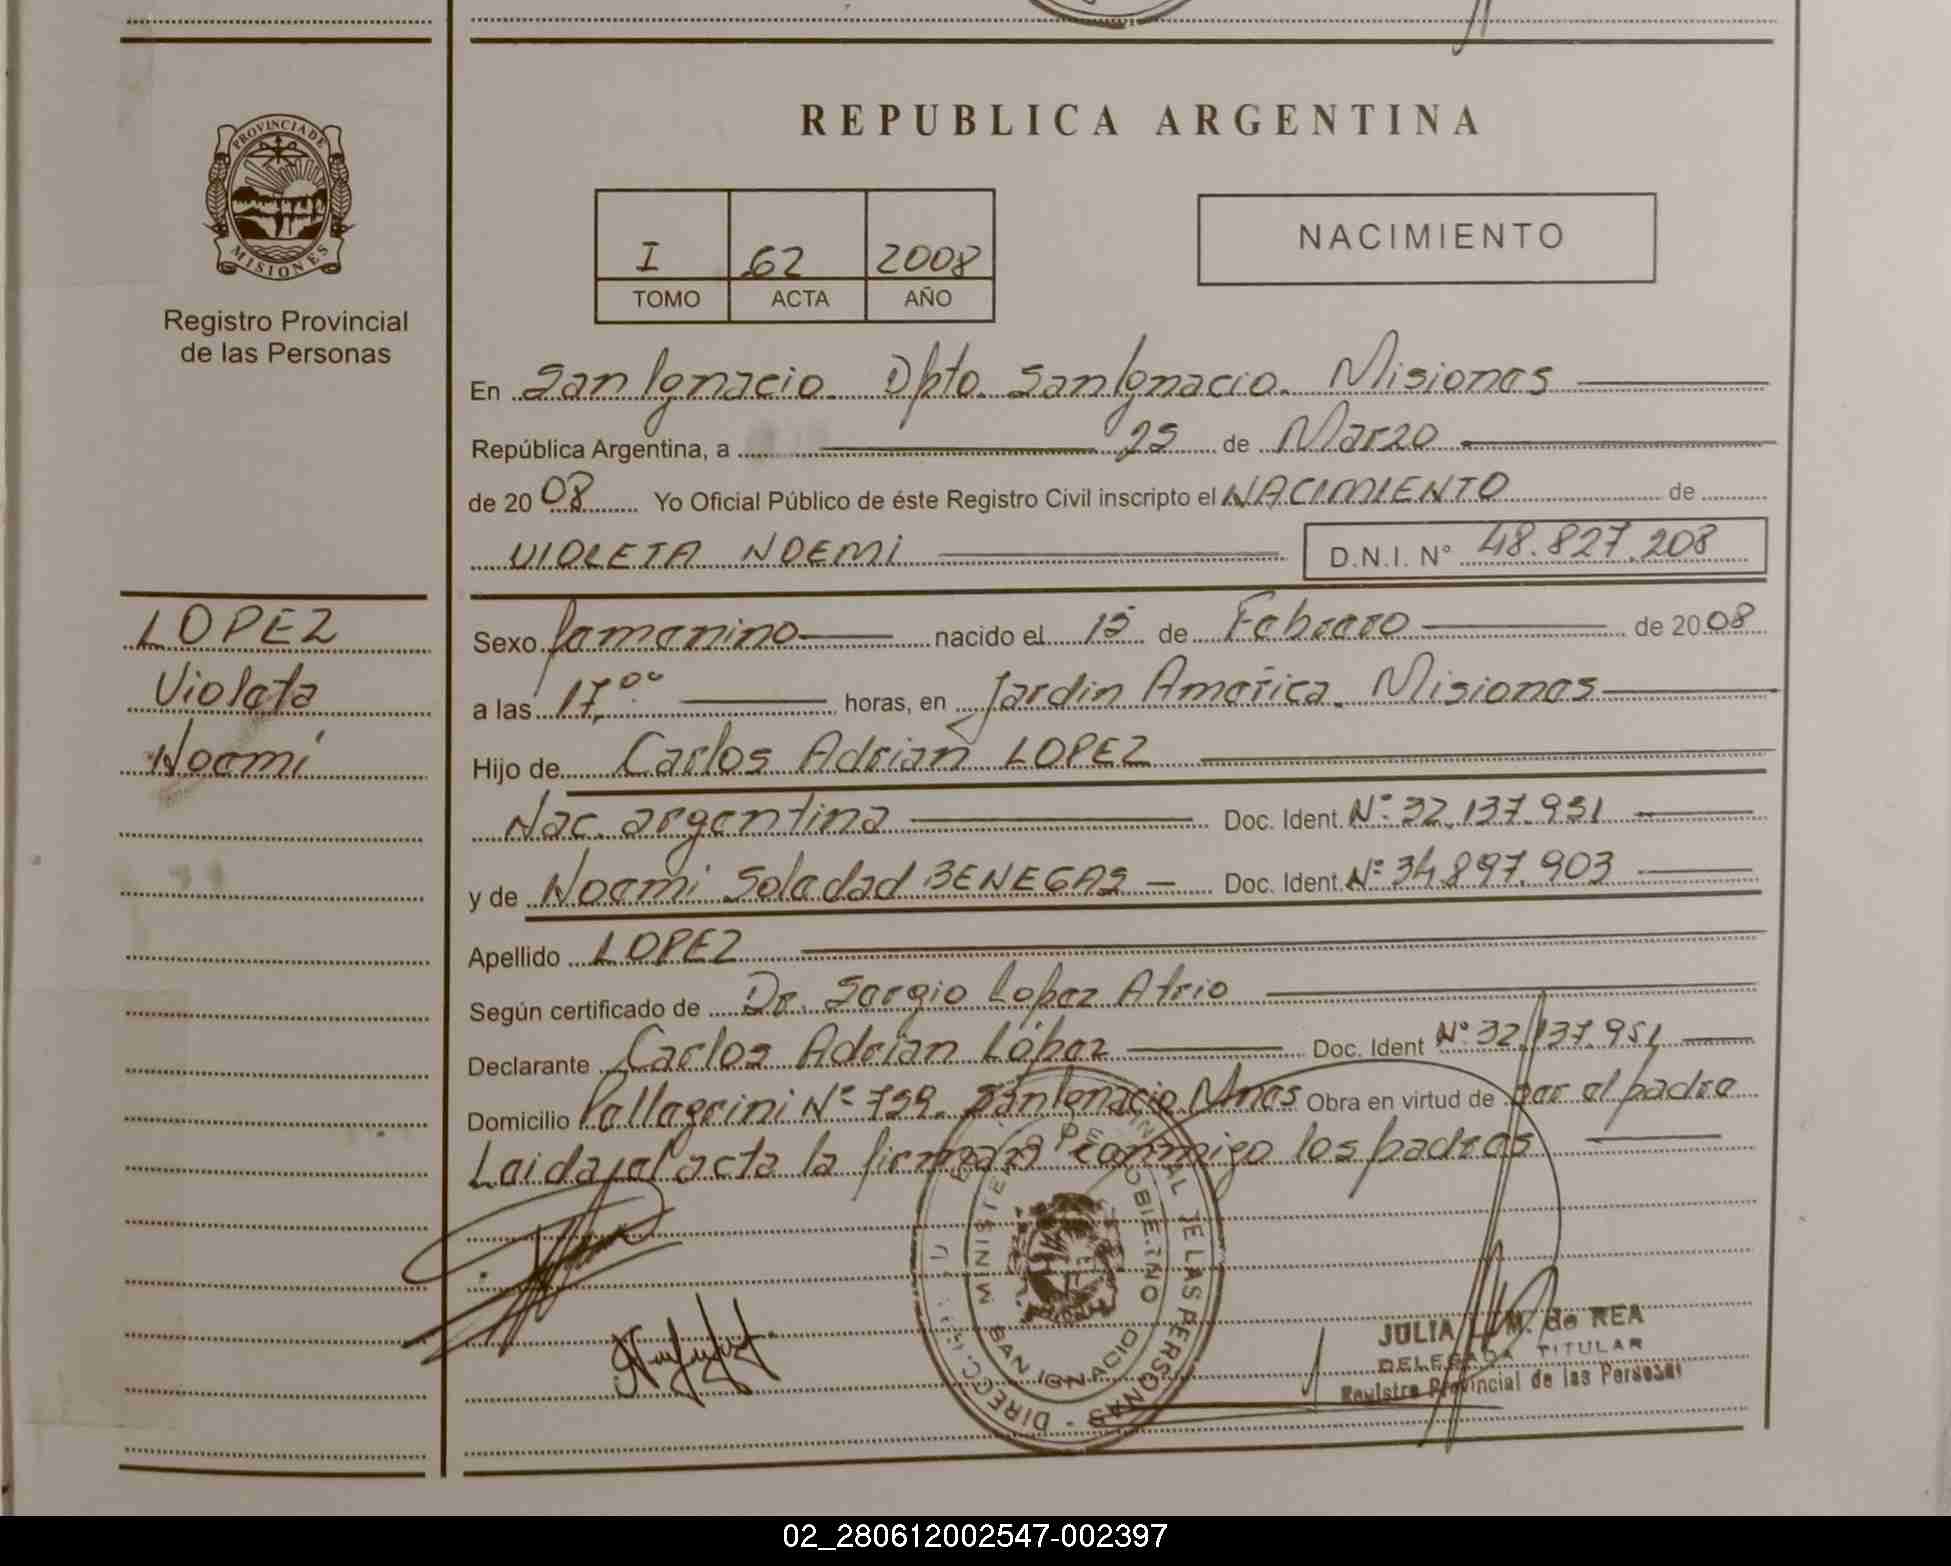 REPUBLICA ARGENTINA
PROVINCIA DE
MISIONES
Registro Provincial
de las Personas
I 62 2008
TOMO ACTA AÑO
NACIMIENTO
En San Ignacio. Dpto. San Ignacio. Misiones
República Argentina, a 25 de Marzo
de 20 08 Yo Oficial Público de éste Registro Civil inscripto el NACIMIENTO de
VIOLETA NOEMI D.N.I. N° 48.827.208
LOPEZ
Violeta
Noemi
Sexo femenino nacido el 15 de Febrero de 20 08
a las 17,00 horas, en Jardin America. Misiones
Hijo de Carlos Adrian LOPEZ
Nac. argentina Doc. Ident. N° 32.137.951
y de Noemi Soledad BENEGAS Doc. Ident. N° 34.897.903
Apellido LOPEZ
Según certificado de Dr. Sergio Lopez Atrio
Declarante Carlos Adrian López Doc. Ident N° 32.137.951
Domicilio Pellegrini N° 759. San Ignacio Mnes Obra en virtud de ser el padre
Leida el acta la firman conmigo los padres
MINISTE GOBIERNO
DIRECC. PROVINCIAL DE LAS PERSONAS
SAN IGNACIO
JULIA M. de REA
DELEGADA TITULAR
Registro Provincial de las Personas
02_280612002547-002397